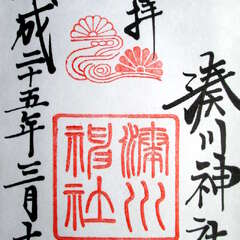 湊川神社
拝
湊川
神社
成二十五年三月十